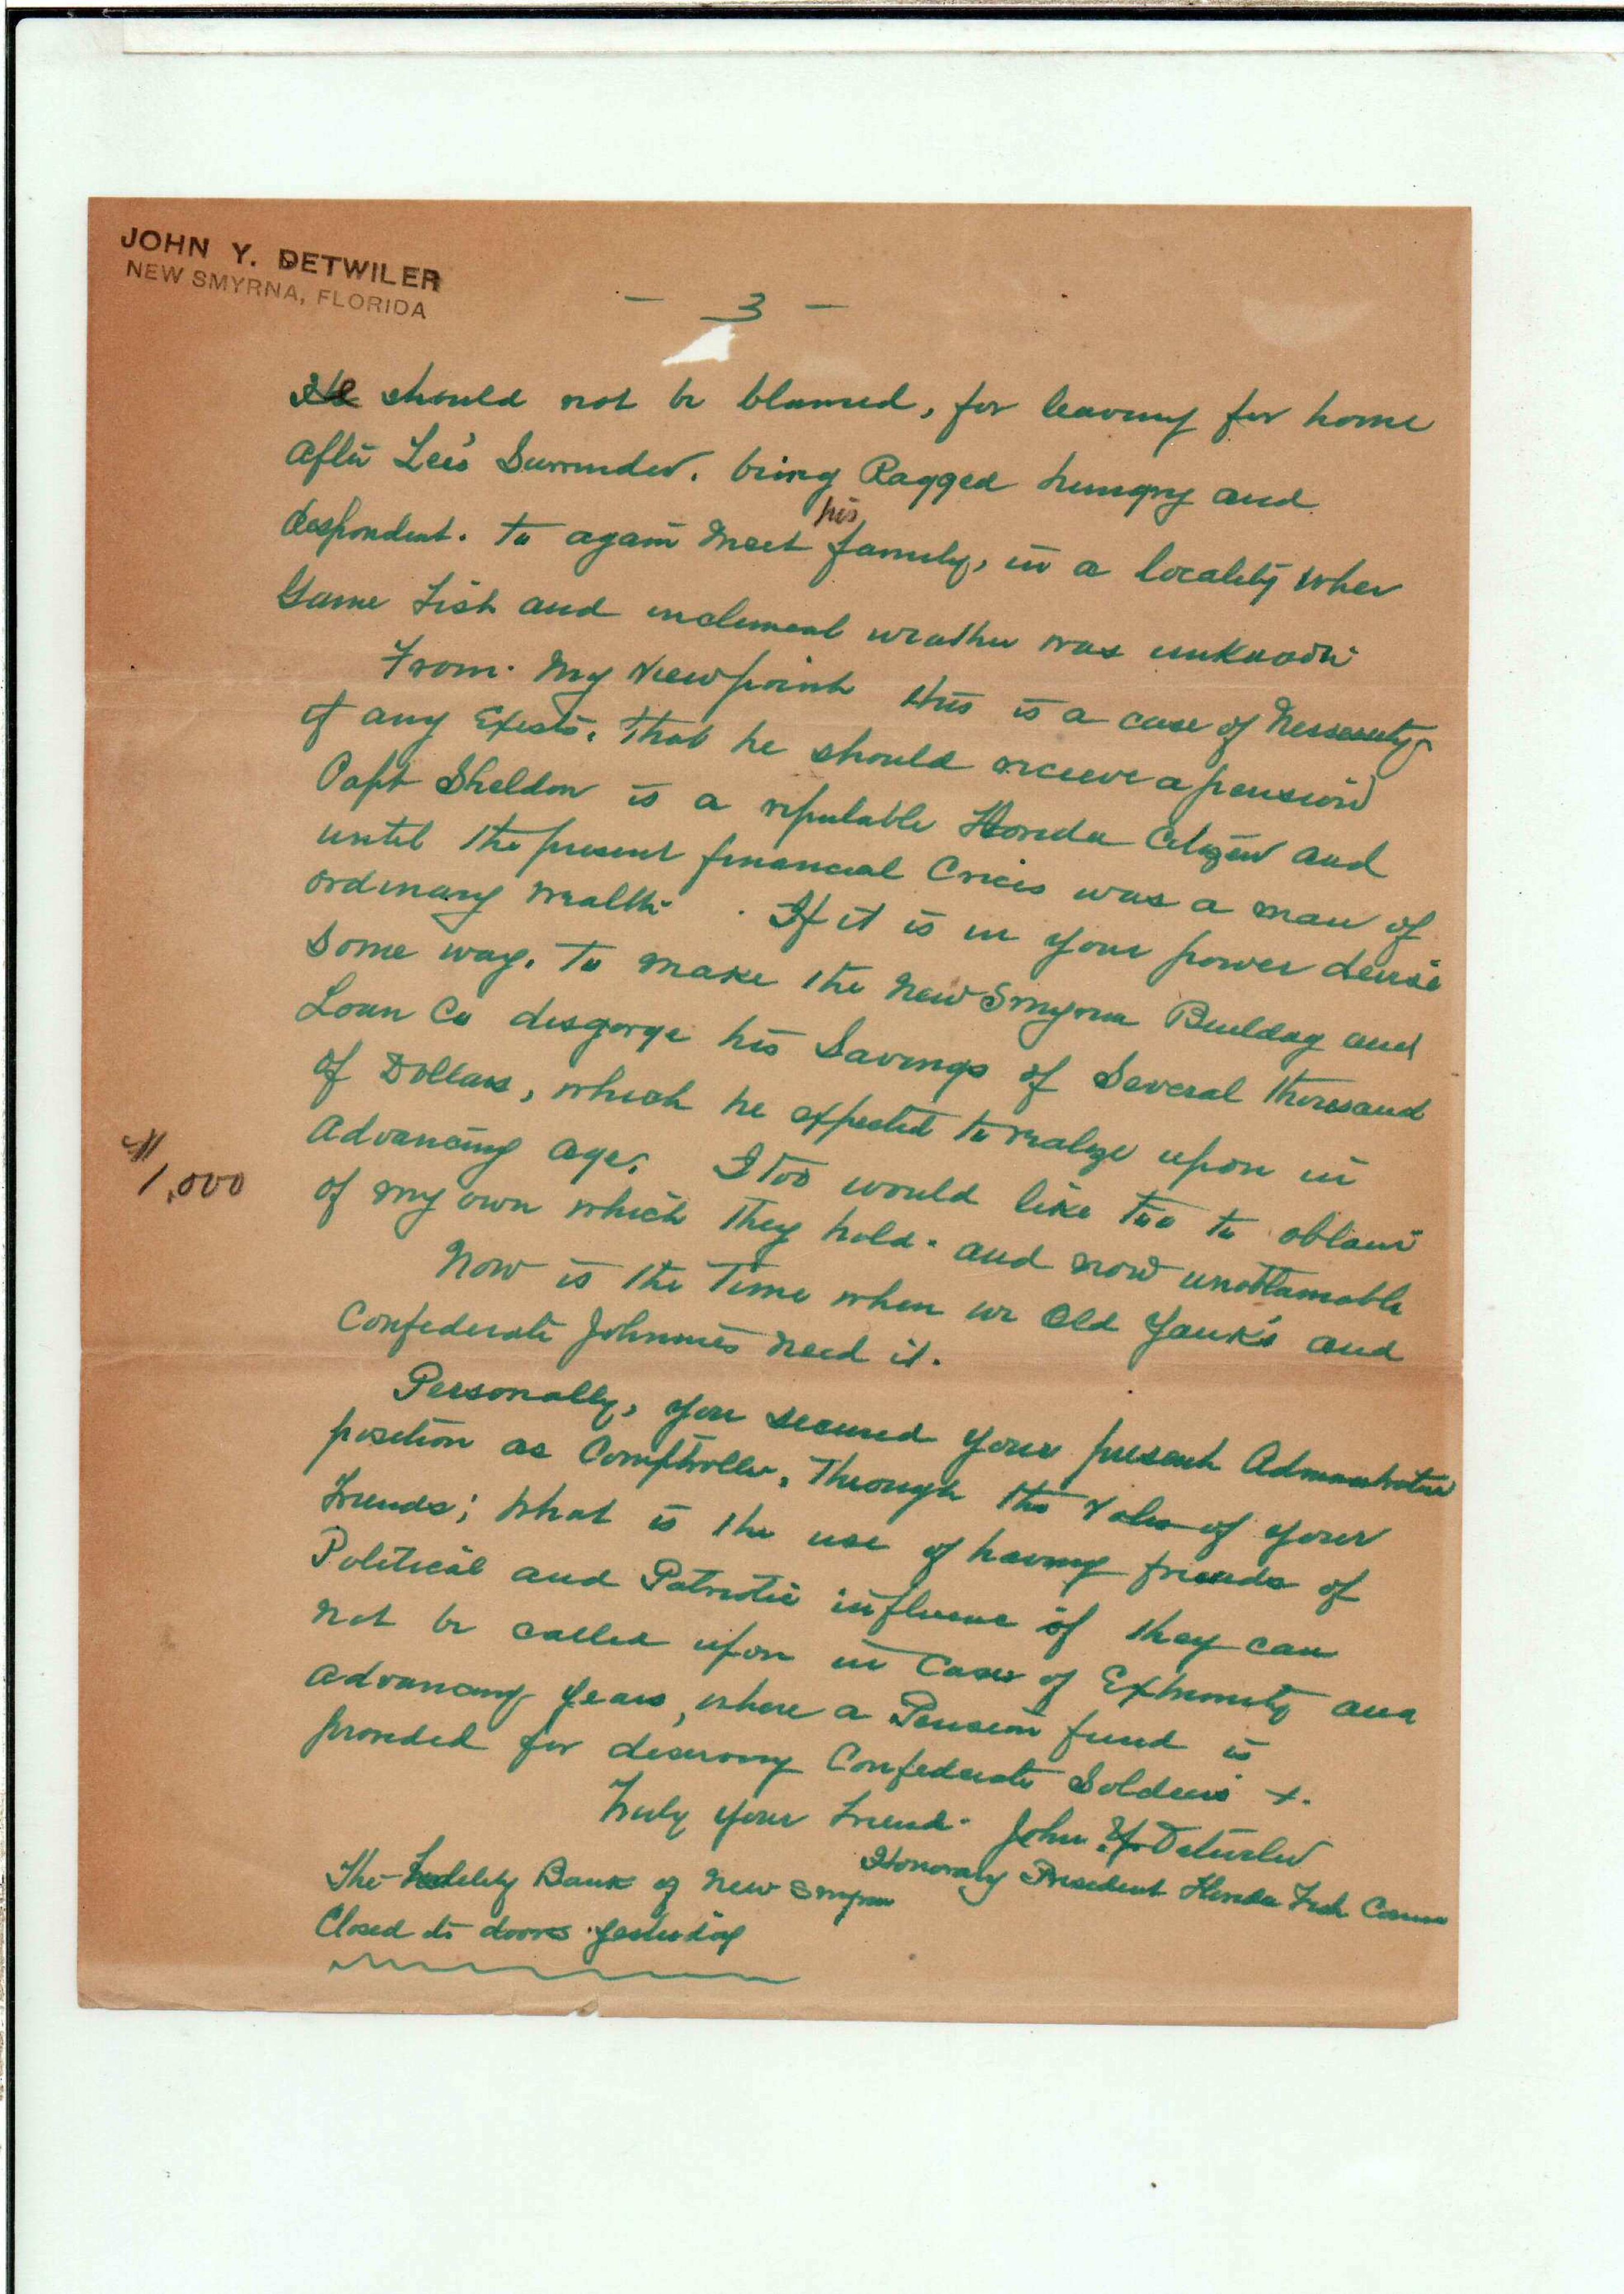 JOHN Y. DETWILER
NEW SMYRNA, FLORIDA
- 3 -
He should not be blamed, for leaving for home
after Lee's Surrender. being Ragged hungry and
despondent. to again meet his family, in a locality wher
Game Fish and inclement weather was unknown
From my Viewpoint this is a case of Nessessity
if any Exists. that he should receive a pension
Capt Sheldon is a reputable Florida Citizen and
until the present financial Crices was a man of
ordinary wealth. If it is in your power devise
some way. to make the New Smyrna Buildag and
Loan Co disgorge his Savings of Several thousand
of Dollars, which he expected to realize upon in
advancing age. I too would like too to obtain
$1,000
of my own which they hold. and now unobtainable
Now is the Time when we Old Yank's and
Confederate Johnnies need it.
Personally, you secured your present Administrative
position as Comptroller, Through the Votes of your
Friends; What is the use of having friends of
Political and Patriotic influence if they can
not be called upon in Cases of Extremity and
advancing years, where a Pension fund is
provided for deserving Confederate Soldiers
Truly your Friend. John Y. Detwiler
Honorary President Florida Fish Comm
The Fidelity Bank of New Smyrna
Closed its doors yesterday